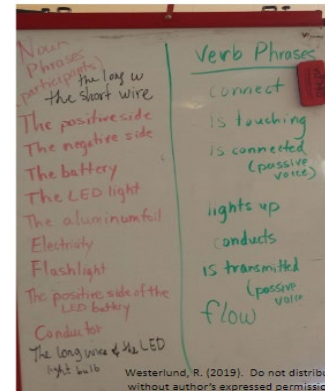 Noun
Phrases
(participants)
the long w
the short wire
The positive side
The negative side
The battery
The LED light
The aluminum foil
Electricity
Flashlight
The positive side of the
LED battery
Conductor
The long wire of the LED
light bulb
Verb Phrases
connect
is touching
is connected
(passive
voice)
lights up
conducts
is transmitted
(passive
voice
flow
Westerlund, R. (2019). Do not distribu
without author's expressed permissio